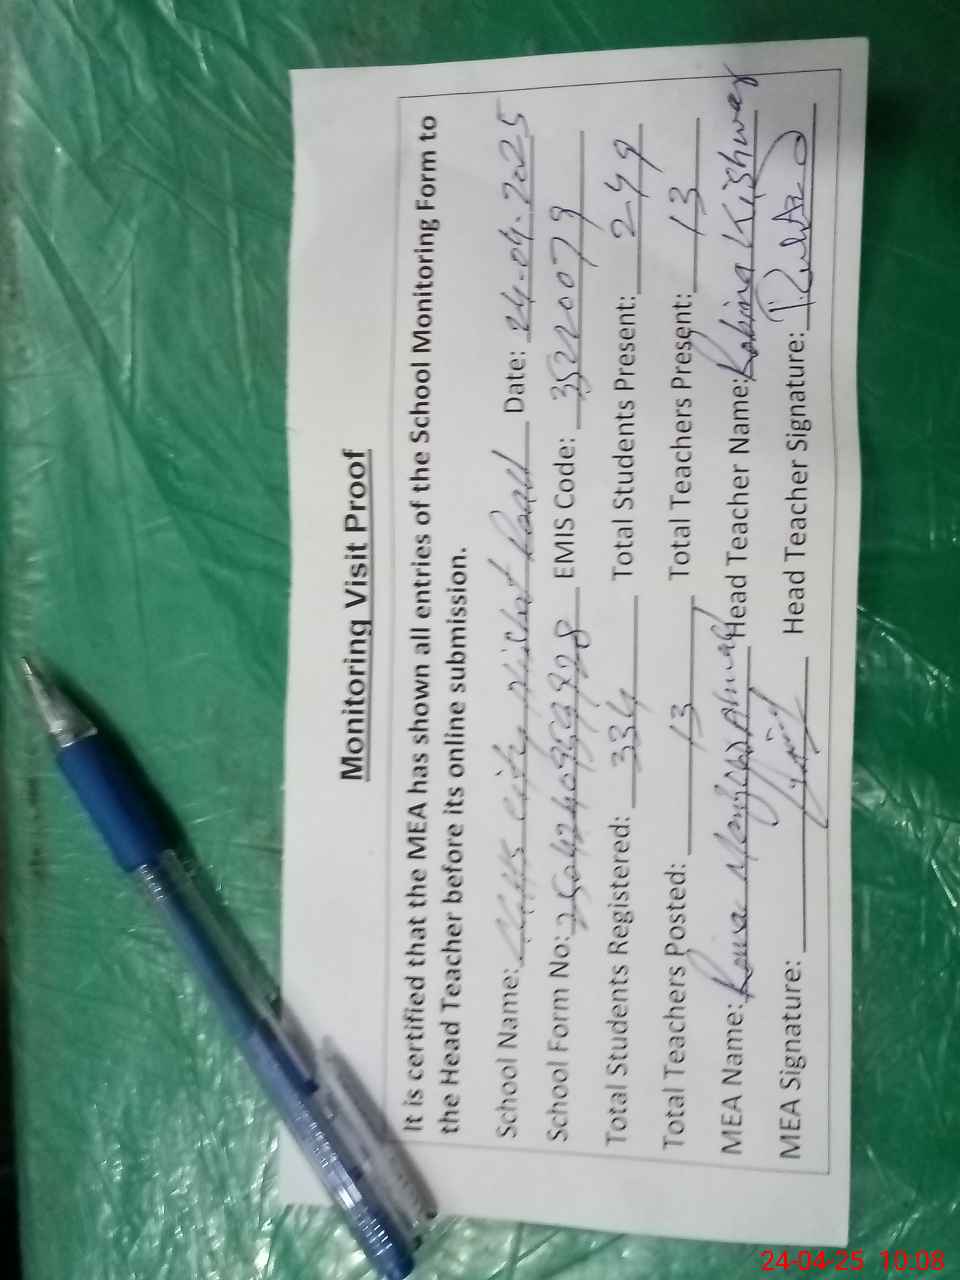 Monitoring Visit Proof
It is certified that the MEA has shown all entries of the School Monitoring Form to
the Head Teacher before its online submission.
School Name: city District Date: 24-04-2025
School Form No: EMIS Code: 35220079
Total Students Registered: 334 Total Students Present: 249
Total Teachers Posted: 13 Total Teachers Present: 13
MEA Name: Head Teacher Name: Robina Kishwar
MEA Signature: Head Teacher Signature:
24-04-25 10:08